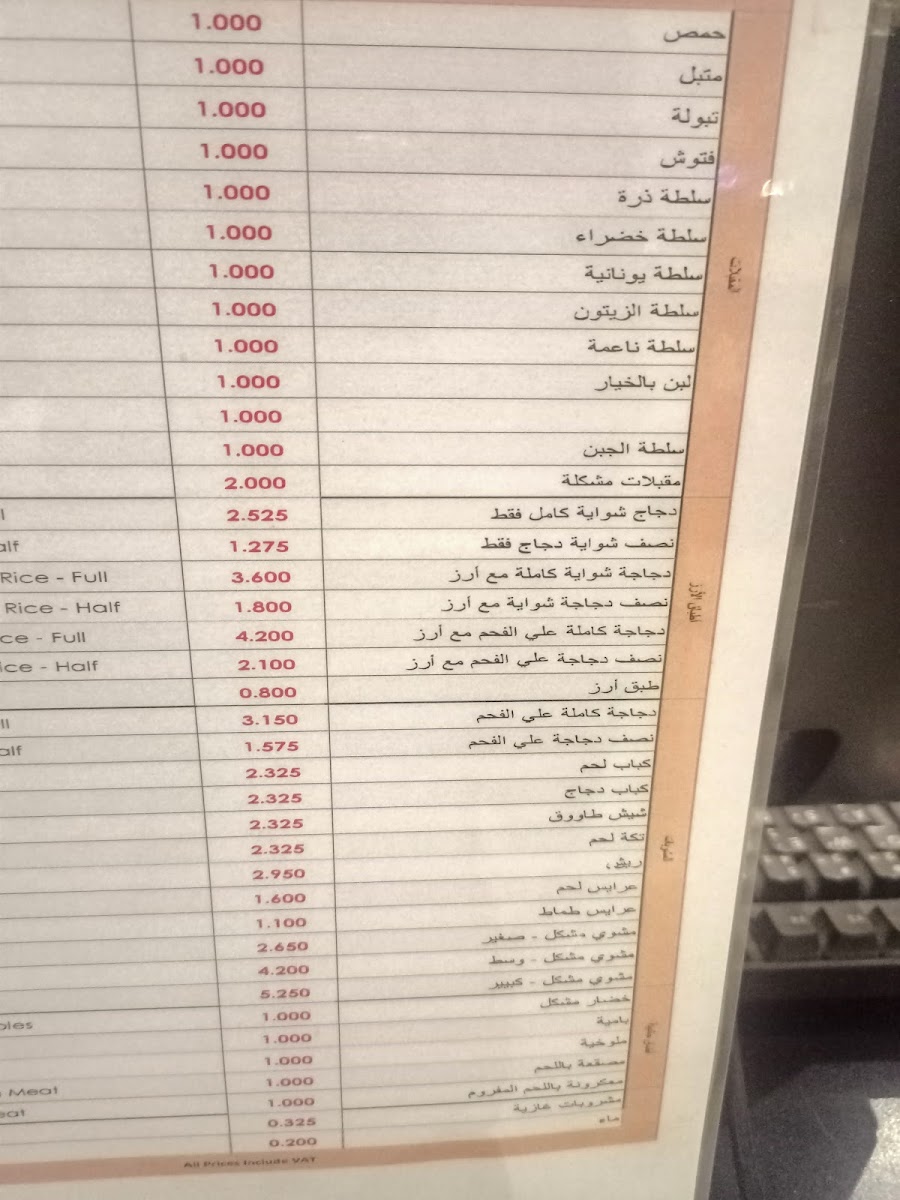 1.000 حمص
1.000 متبل
1.000 تبولة
1.000 فتوش
1.000 سلطة ذرة
1.000 سلطة خضراء
1.000 سلطة يونانية
1.000 سلطة الزيتون
1.000 سلطة ناعمة
1.000 لبن بالخيار
1.000
1.000 سلطة الجبن
2.000 مقبلات مشكلة
المقبلات
2.525 دجاج شواية كامل فقط
alf 1.275 نصف شواية دجاج فقط
Rice - Full 3.600 دجاجة شواية كاملة مع أرز
Rice - Half 1.800 نصف دجاجة شواية مع أرز
ce - Full 4.200 دجاجة كاملة علي الفحم مع أرز
ice - Half 2.100 نصف دجاجة علي الفحم مع أرز
0.800 طبق أرز
ll 3.150 دجاجة كاملة علي الفحم
alf 1.575 نصف دجاجة علي الفحم
2.325 كباب لحم
2.325 كباب دجاج
2.325 شيش طاووق
2.325 تكة لحم
2.950 ريش
1.600 عرايس لحم
1.100 عرايس طماط
2.650 مشوي مشكل - صغير
4.200 مشوي مشكل - وسط
5.250 مشوي مشكل - كبيير
bles 1.000 خضار مشكل
1.000 بامية
1.000 ملوخية
Meat 1.000 مصقعة باللحم
eat 1.000 معكرونة باللحم المفروم
0.325 مشروبات غازية
0.200 ماء
All Prices Include VAT